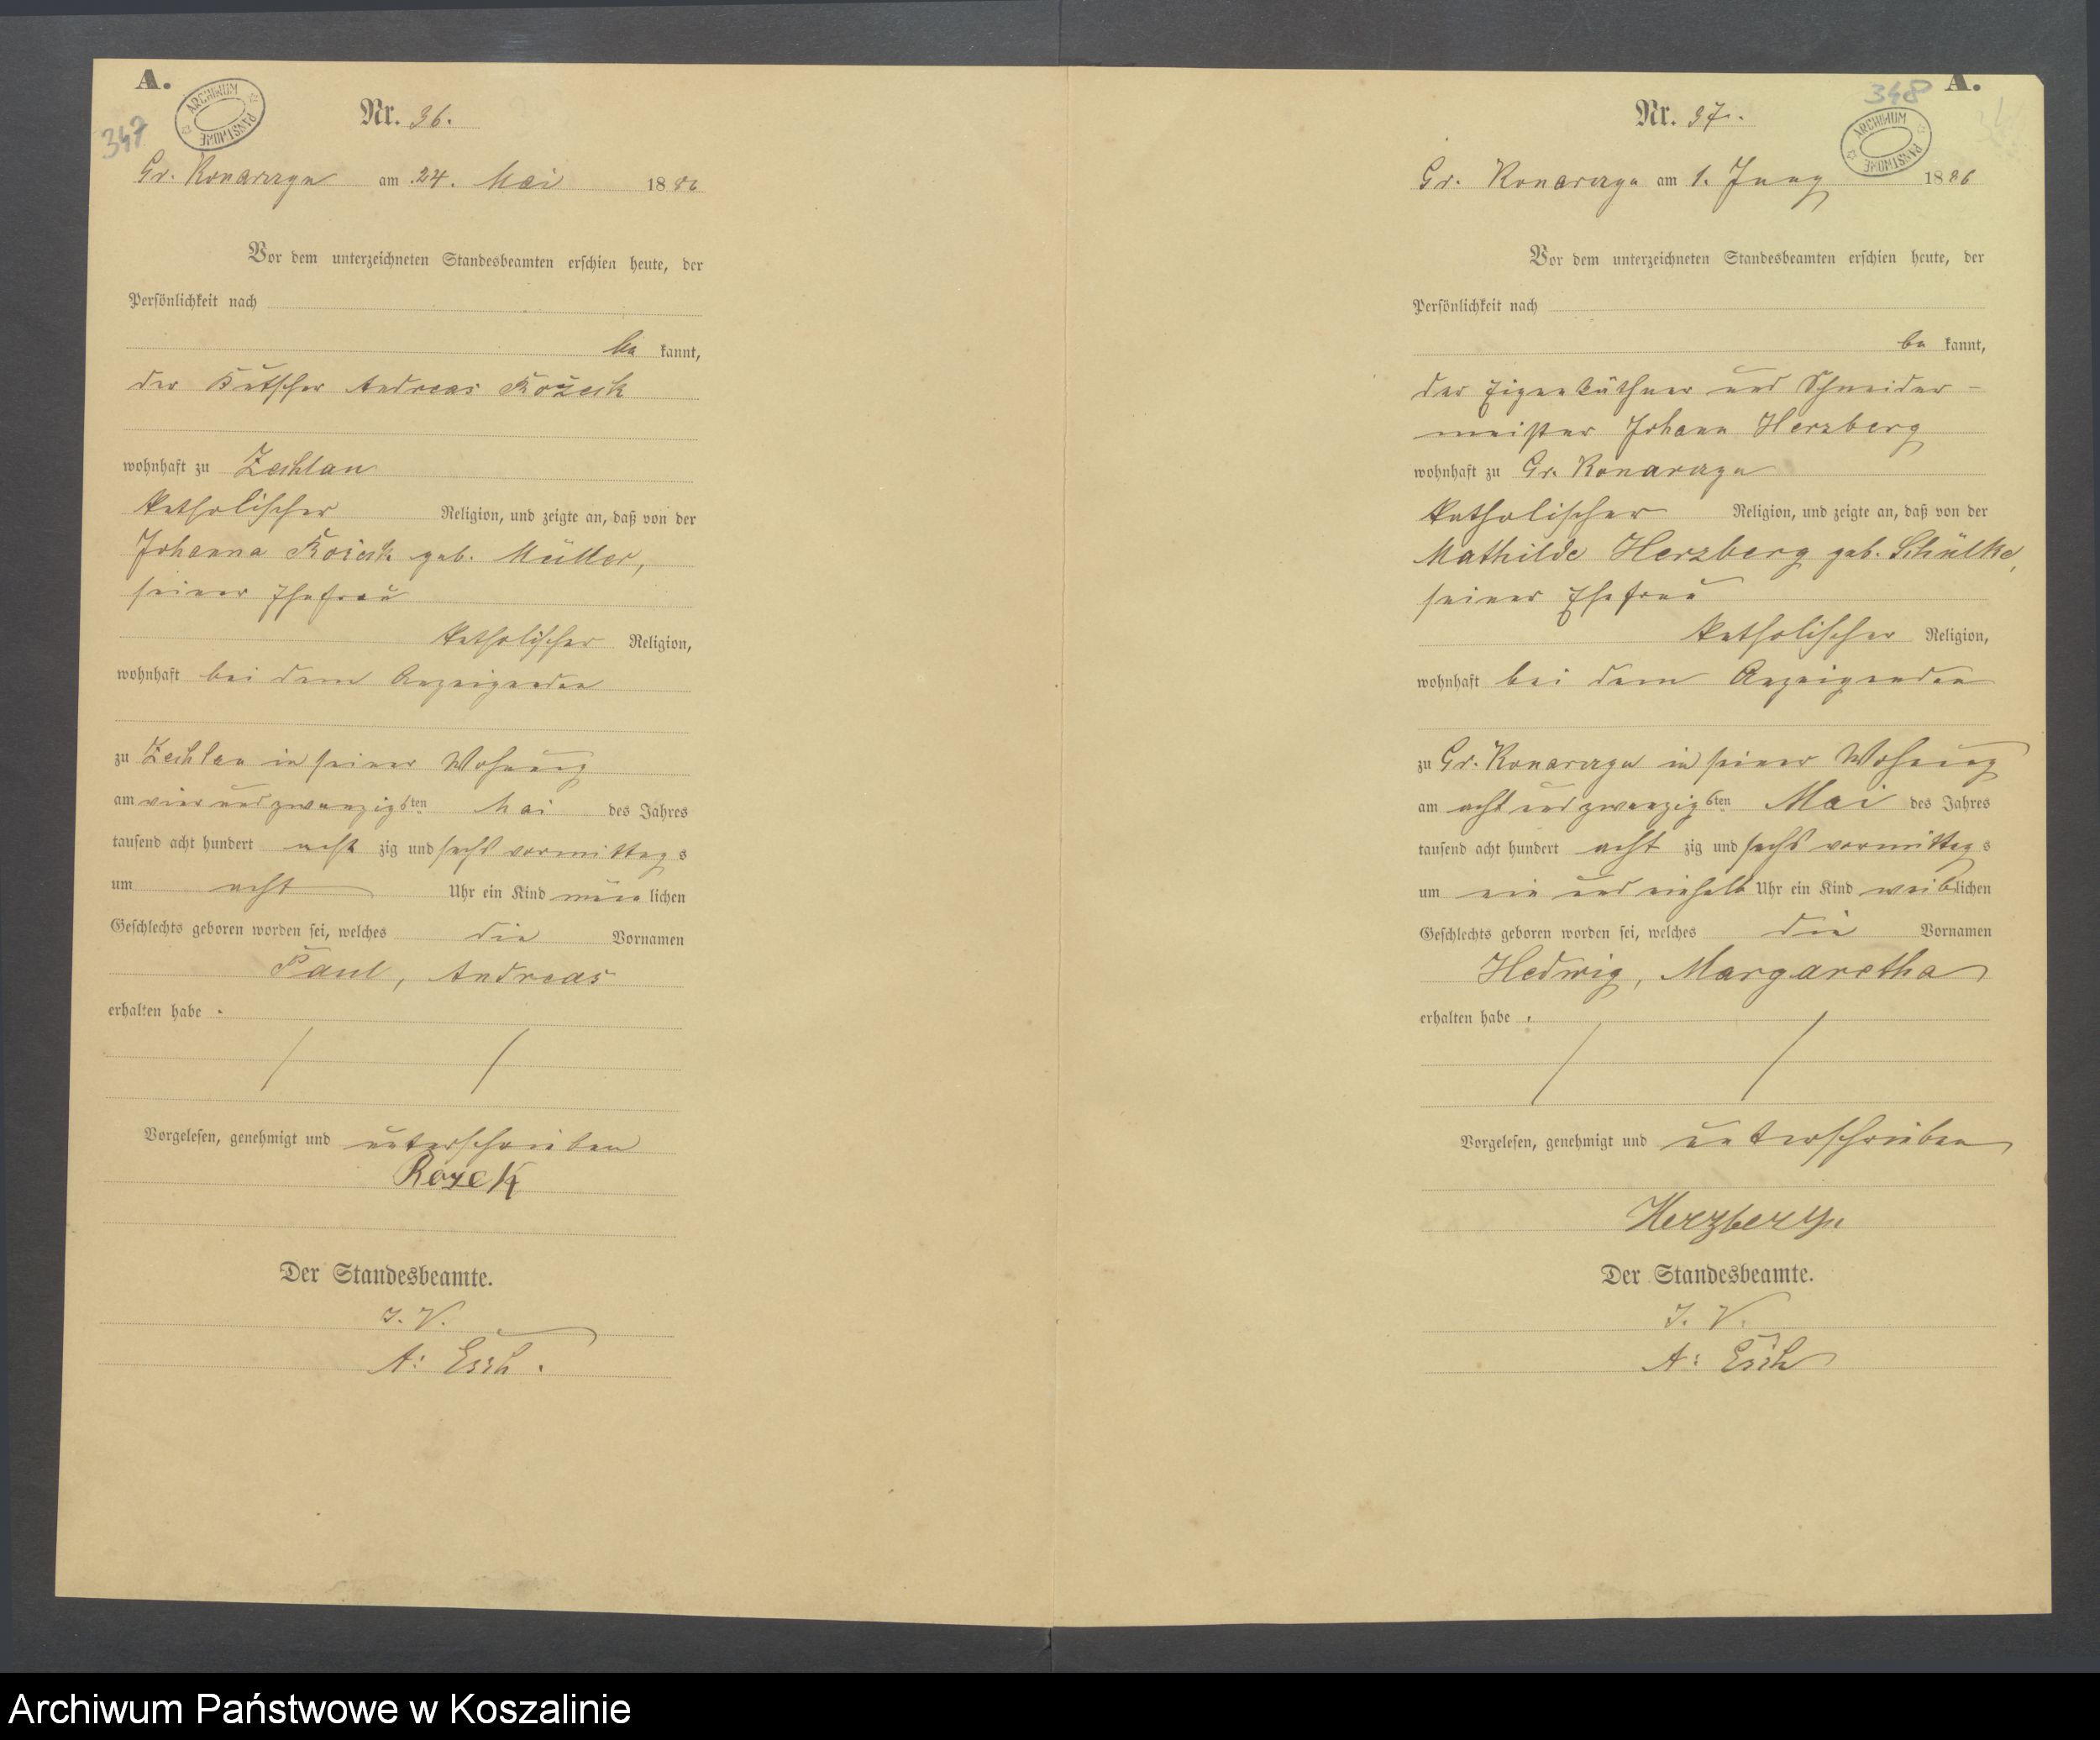 A.
ARCHIWUM PAŃSTWOWE
347
Nr. 36.
Gr. Konarczyn am 24. Mai 1886
Vor dem unterzeichneten Standesbeamten erschien heute, der
Persönlichkeit nach
be kannt,
der Kutscher Andreas
wohnhaft zu Zechlau
katholischer Religion, und zeigte an, daß von der
Johanna geb. Müller,
seiner Ehefrau
katholischer Religion,
wohnhaft bei dem Anzeigenden
zu Zechlau in seiner Wohnung
am vier und zwanzigsten Mai des Jahres
tausend acht hundert acht zig und sechs vormittags
um acht Uhr ein Kind männlichen
Geschlechts geboren worden sei, welches die Vornamen
Paul, Andreas
erhalten habe.
Vorgelesen, genehmigt und unterschrieben
Der Standesbeamte.
J. V.
A: Esch.
A.
348
ARCHIWUM PAŃSTWOWE
Nr. 37.
Gr. Konarczyn am 1. Juny 1886
Vor dem unterzeichneten Standesbeamten erschien heute, der
Persönlichkeit nach
be kannt,
der Eigenkäthner und Schneider-
meister Johann Herzberg
wohnhaft zu Gr. Konarczyn
katholischer Religion, und zeigte an, daß von der
Mathilde Herzberg geb. Schülke,
seiner Ehefrau
katholischer Religion,
wohnhaft bei dem Anzeigenden
zu Gr. Konarczyn in seiner Wohnung
am acht und zwanzigsten Mai des Jahres
tausend acht hundert acht zig und sechs vormittags
um ein und einhalb Uhr ein Kind weiblichen
Geschlechts geboren worden sei, welches die Vornamen
Hedwig, Margaretha
erhalten habe.
Vorgelesen, genehmigt und unterschrieben
Herzberg.
Der Standesbeamte.
J. V.
A: Esch
Archiwum Państwowe w Koszalinie